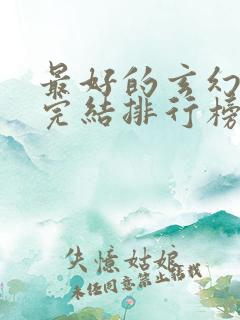 最好的玄幻
完結排行榜
失憶姑娘
未经同意禁止转载